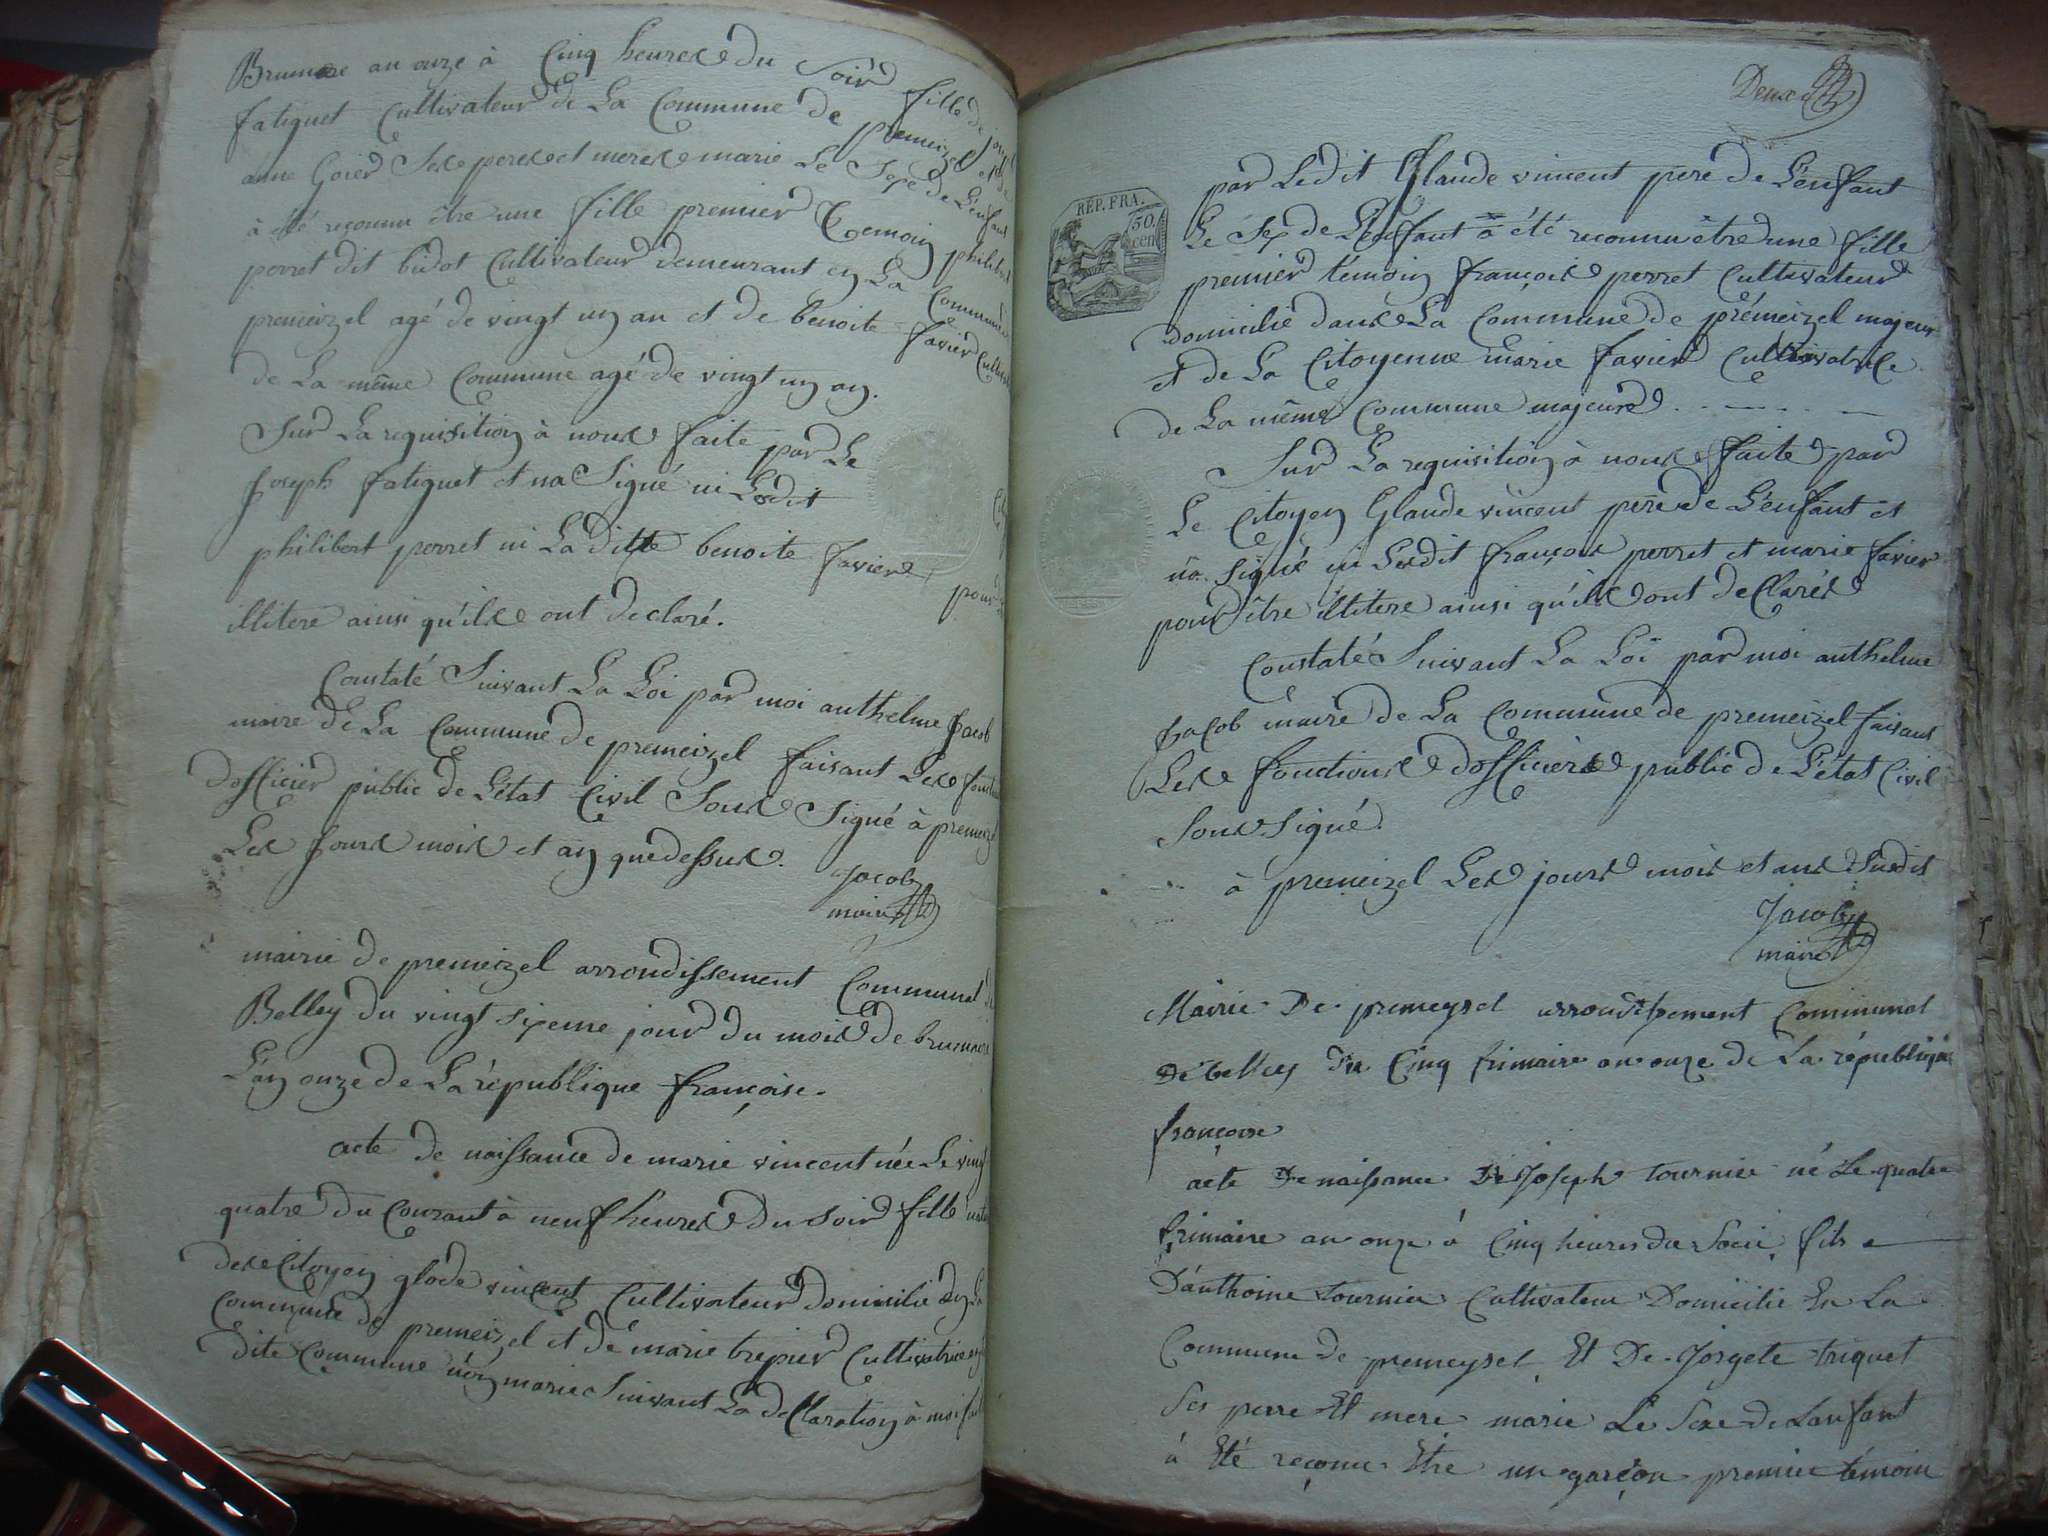 Brumaire an onze à Cinq heures du Soir fille de
fatiguet Cultivateur de La Commune de premeizel et de
anne Goier Ses peres et meres marie Le Sexe de L'enfant
à été reconnu être une fille premier Temoin philibert
perret dit bidot Cultivateur demeurant en La Commune
premeizel agé de vingt un an et de benoite favier
de La même Commune agé de vingt un an.
Sur La requisition à nous faite par Le
Joseph fatiguet et na Signé ni Ledit
philibert perret ni La ditte benoite favier pour
illitere ainsi qu'ils ont declaré.
Constaté Suivant La Loi par moi anthelme Jacob
maire de La Commune de premeizel faisant Les
dofficier public de L'état Civil Sous Signé à premeizel
Les Jours mois et an que dessus.
Jacob
maire
mairie de premeizel arrondissement Communal
Belley du vingt sixeme jour du mois de brumaire
L'an onze de La république françoise.
acte de naissance de marie vincent née Le vingt
quatre du Courant à neuf heures du soir fille
des Citoyen glode vincent Cultivateur domicilié en La
Commune de premeizel et de marie trepier Cultivatrice
dite Commune non marie Suivant La declaration à moi
Deux
RÉP. FRA.
50.
cen
par Ledit Glaude vincent pere de L'enfant
Le Sex de L'enfant a été reconnu être une fille
premier témoin françois perret Cultivateur
domicilié dans La Commune de prémeizel majeur
et de La Citoyenne marie favier Cultivatrice
de La même Commune majeure
Sur La requisition à nous faite par
Le Citoyen Glaude vincent pere de L'enfant et
na Signé ni Ledit françois perret et marie favier
pour être illitere ainsi qu'ils ont declarés
Constaté Suivant La Loi par moi anthelme
Jacob maire de La Commune de premeizel faisant
Les fonctions dofficiers public de L'état Civil
Sous Signé
à premeizel Les jours mois et ans Susdit
Jacob
maire
Mairie De premeysel arrondissement Communal
De belley Du Cinq frimaire an onze de La république
françoise
acte De naissance De Joseph tournier né Le quatre
frimaire an onze à Cinq heures du Soir fils
D'anthoine tournier Cultivateur Domicilié En La
Commune de premeysel Et De Josgete triquet
Ses perre Et mere marie Le Sexe de Lanfant
à Eté reconu Etre un garçon premier témoin